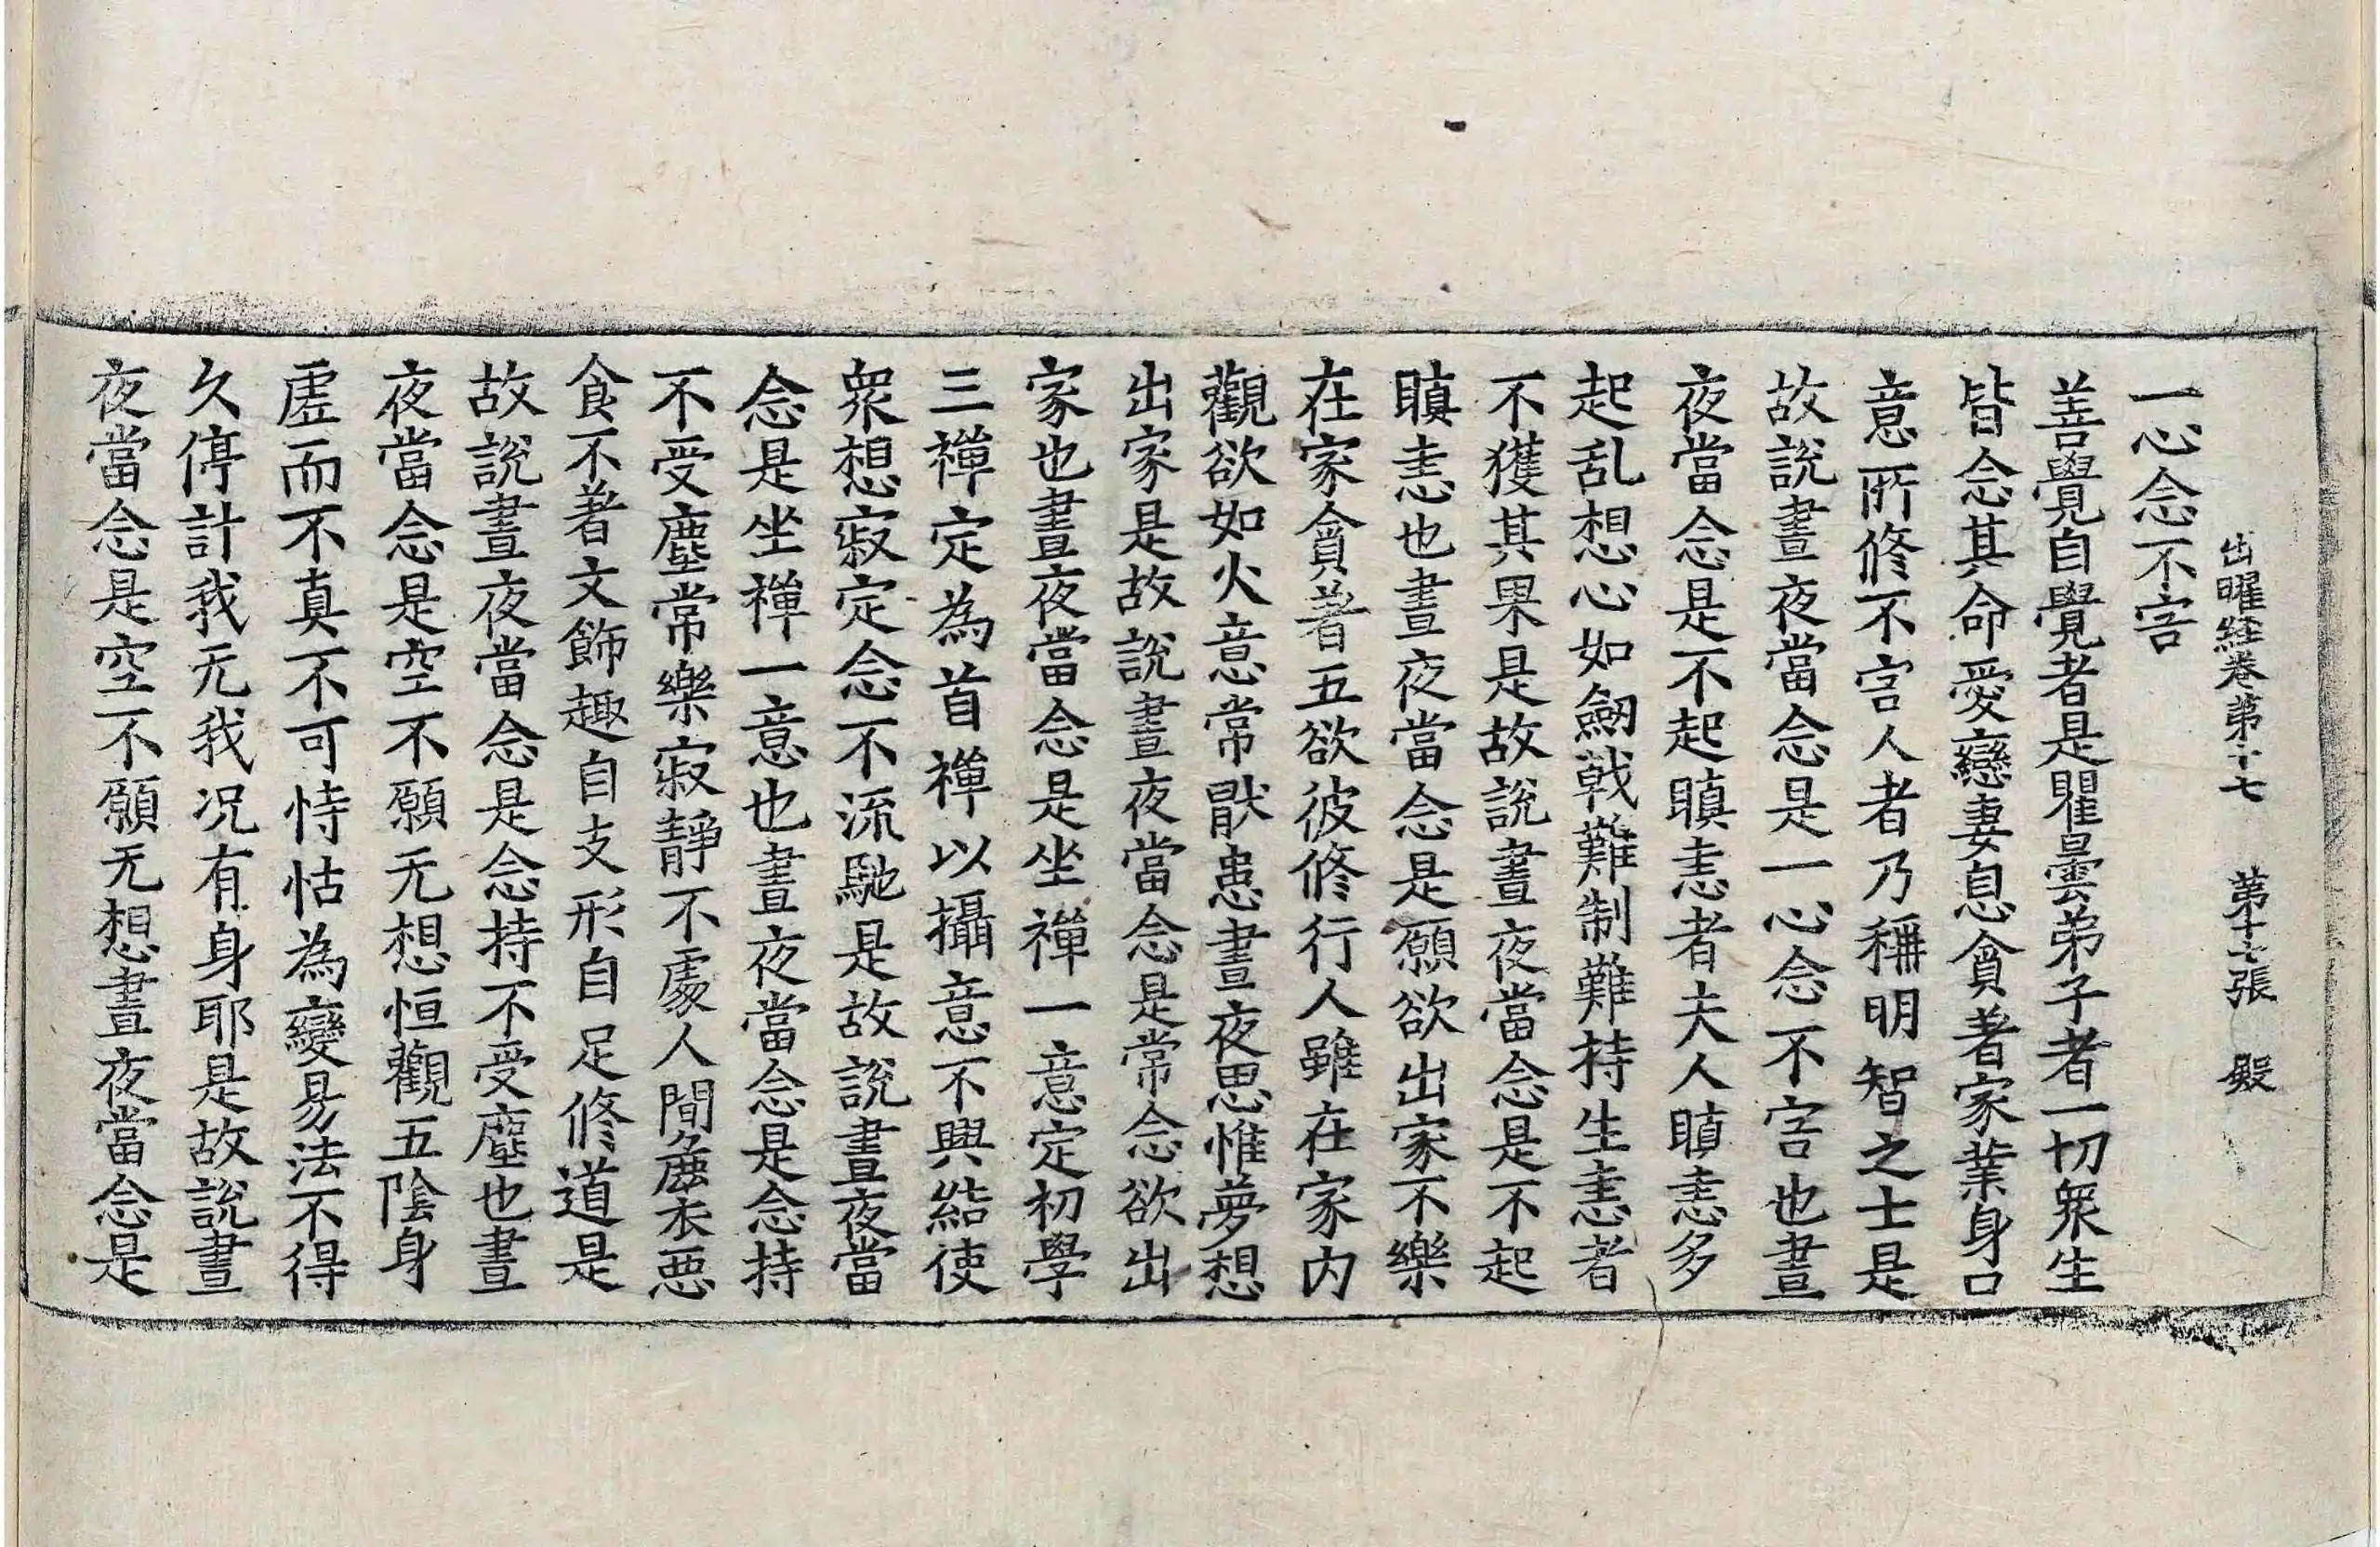 出曜經卷第十七 第十七張 殿
一心念不害
善覺自覺者是瞿曇弟子者一切衆生
皆念其命愛戀妻息貪著家業身口
意所修不害人者乃稱明智之士是
故說晝夜當念是一心念不害也晝
夜當念是不起瞋恚者夫人瞋恚多
起乱想心如劒戟難制難持生恚者
不獲其果是故說晝夜當念是不起
瞋恚也晝夜當念是願欲出家不樂
在家貪著五欲彼修行人雖在家内
觀欲如火意常猒患晝夜思惟夢想
出家是故說晝夜當念是常念欲出
家也晝夜當念是坐禪一意定初學
三禪定為首禪以攝意不興結使
衆想寂定念不流馳是故說晝夜當
念是坐禪一意也晝夜當念是念持
不受塵常樂寂靜不處人間麁衣惡
食不著文飾趣自支形自足修道是
故說晝夜當念是念持不受塵也晝
夜當念是空不願无想恒觀五陰身
虛而不真不可恃怙為變易法不得
久停計我无我况有身耶是故說晝
夜當念是空不願无想晝夜當念是